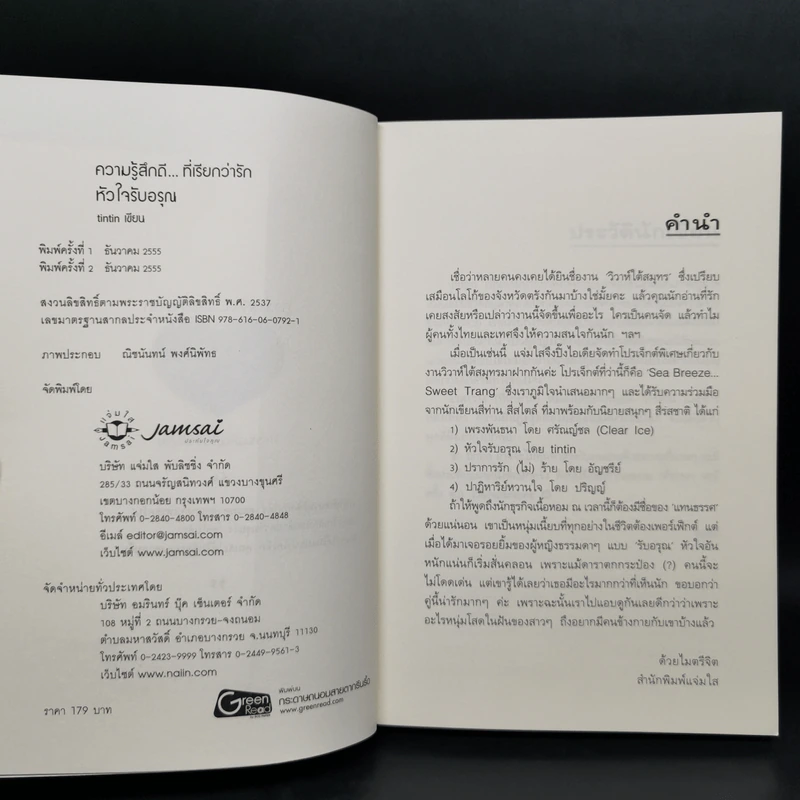 ความรู้สึกดี... ที่เรียกว่ารัก
หัวใจรับอรุณ
tintin เขียน
พิมพ์ครั้งที่ 1 ธันวาคม 2555
พิมพ์ครั้งที่ 2 ธันวาคม 2555
สงวนลิขสิทธิ์ตามพระราชบัญญัติลิขสิทธิ์ พ.ศ. 2537
เลขมาตรฐานสากลประจำหนังสือ ISBN 978-616-06-0792-1
ภาพประกอบ ณิชนันทน์ พงศ์นิพัทธ
จัดพิมพ์โดย
แจ่มใส
Jamsai
Jamsai
บริษัท แจ่มใส พับลิชชิ่ง จำกัด
285/33 ถนนจรัญสนิทวงศ์ แขวงบางขุนศรี
เขตบางกอกน้อย กรุงเทพฯ 10700
โทรศัพท์ 0-2840-4800 โทรสาร 0-2840-4848
อีเมล์ editor@jamsai.com
เว็บไซต์ www.jamsai.com
จัดจำหน่ายทั่วประเทศโดย
บริษัท อมรินทร์ บุ๊ค เซ็นเตอร์ จำกัด
108 หมู่ที่ 2 ถนนบางกรวย-จงถนอม
ตำบลมหาสวัสดิ์ อำเภอบางกรวย จ.นนทบุรี 11130
โทรศัพท์ 0-2423-9999 โทรสาร 0-2449-9561-3
เว็บไซต์ www.naiin.com
ราคา 179 บาท
Green Read
พิมพ์บน
กระดาษถนอมสายตากรีนรี้ด
www.greenread.com
คำนำ
เชื่อว่าหลายคนคงเคยได้ยินชื่องาน 'วิวาห์ใต้สมุทร' ซึ่งเปรียบ
เสมือนโลโก้ของจังหวัดตรังกันมาบ้างใช่มั้ยคะ แล้วคุณนักอ่านที่รัก
เคยสงสัยหรือเปล่าว่างานนี้จัดขึ้นเพื่ออะไร ใครเป็นคนจัด แล้วทำไม
ผู้คนทั้งไทยและเทศจึงให้ความสนใจกันนัก ฯลฯ
เมื่อเป็นเช่นนี้ แจ่มใสจึงปิ๊งไอเดียจัดทำโปรเจ็กต์พิเศษเกี่ยวกับ
งานวิวาห์ใต้สมุทรมาฝากกันค่ะ โปรเจ็กต์ที่ว่านี้ก็คือ 'Sea Breeze...
Sweet Trang' ซึ่งเราภูมิใจนำเสนอมากๆ และได้รับความร่วมมือ
จากนักเขียนสี่ท่าน สี่สไตล์ ที่มาพร้อมกับนิยายสนุกๆ สี่รสชาติ ได้แก่
1) เพรงพันธนา โดย ศรัณญ์ชล (Clear Ice)
2) หัวใจรับอรุณ โดย tintin
3) ปราการรัก (ไม่) ร้าย โดย อัญชรีย์
4) ปาฏิหาริย์หวานใจ โดย ปริญญ์
ถ้าให้พูดถึงนักธุรกิจเนื้อหอม ณ เวลานี้ก็ต้องมีชื่อของ 'แทนธรรศ'
ด้วยแน่นอน เขาเป็นหนุ่มเนี้ยบที่ทุกอย่างในชีวิตต้องเพอร์เฟ็กต์ แต่
เมื่อได้มาเจอรอยยิ้มของผู้หญิงธรรมดาๆ แบบ 'รับอรุณ' หัวใจอัน
หนักแน่นก็เริ่มสั่นคลอน เพราะแม้ดาราตกกระป๋อง (?) คนนี้จะ
ไม่โดดเด่น แต่เขารู้ได้เลยว่าเธอมีอะไรมากกว่าที่เห็นนัก ขอบอกว่า
คู่นี้น่ารักมากๆ ค่ะ เพราะฉะนั้นเราไปแอบดูกันเลยดีกว่าว่าเพราะ
อะไรหนุ่มโสดในฝันของสาวๆ ถึงอยากมีคนข้างกายกับเขาบ้างแล้ว
ด้วยไมตรีจิต
สำนักพิมพ์แจ่มใส